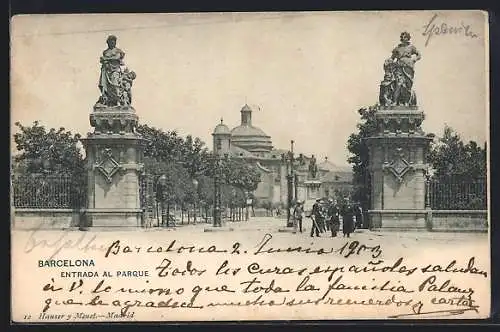 Spanien
BARCELONA
ENTRADA AL PARQUE
Barcelona 2 Junio 1903
Todos los curas españoles saludan
á V. lo mismo que toda la familia Palau
que le agradece mucho sus recuerdos y carta
12 Hauser y Menet.-Madrid